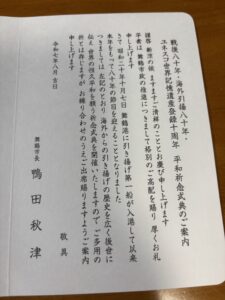 戦後八十年・海外引揚八十年・
ユネスコ世界記憶遺産登録十周年　平和祈念式典のご案内
謹啓　新涼の候　ますますご清祥のこととお慶び申し上げます
平素は　舞鶴市政の推進につきまして格別のご高配を賜り　厚くお礼
申し上げます
さて　昭和二十年十月七日　舞鶴港に引き揚げ第一船が入港して以来
本年をもって八十年の節目を迎えることとなりました
つきましては　左記のとおり　海外からの引き揚げの歴史を広く後世に
伝え　世界の恒久平和を願う祈念式典を開催いたしますので　ご多用の
折とは存じますが　お繰り合わせのうえご出席賜りますようご案内
申し上げます
敬具
令和七年八月吉日
舞鶴市長　鴨田秋津